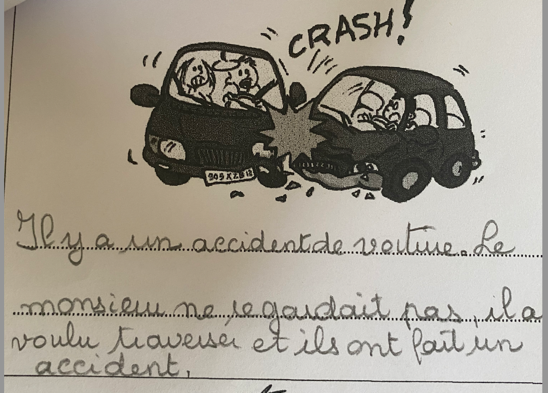 CRASH!
909 XZB 12
Il y a un accident de voiture. Le
monsieur ne regardait pas, il a
voulu traverser et ils ont fait un
accident.